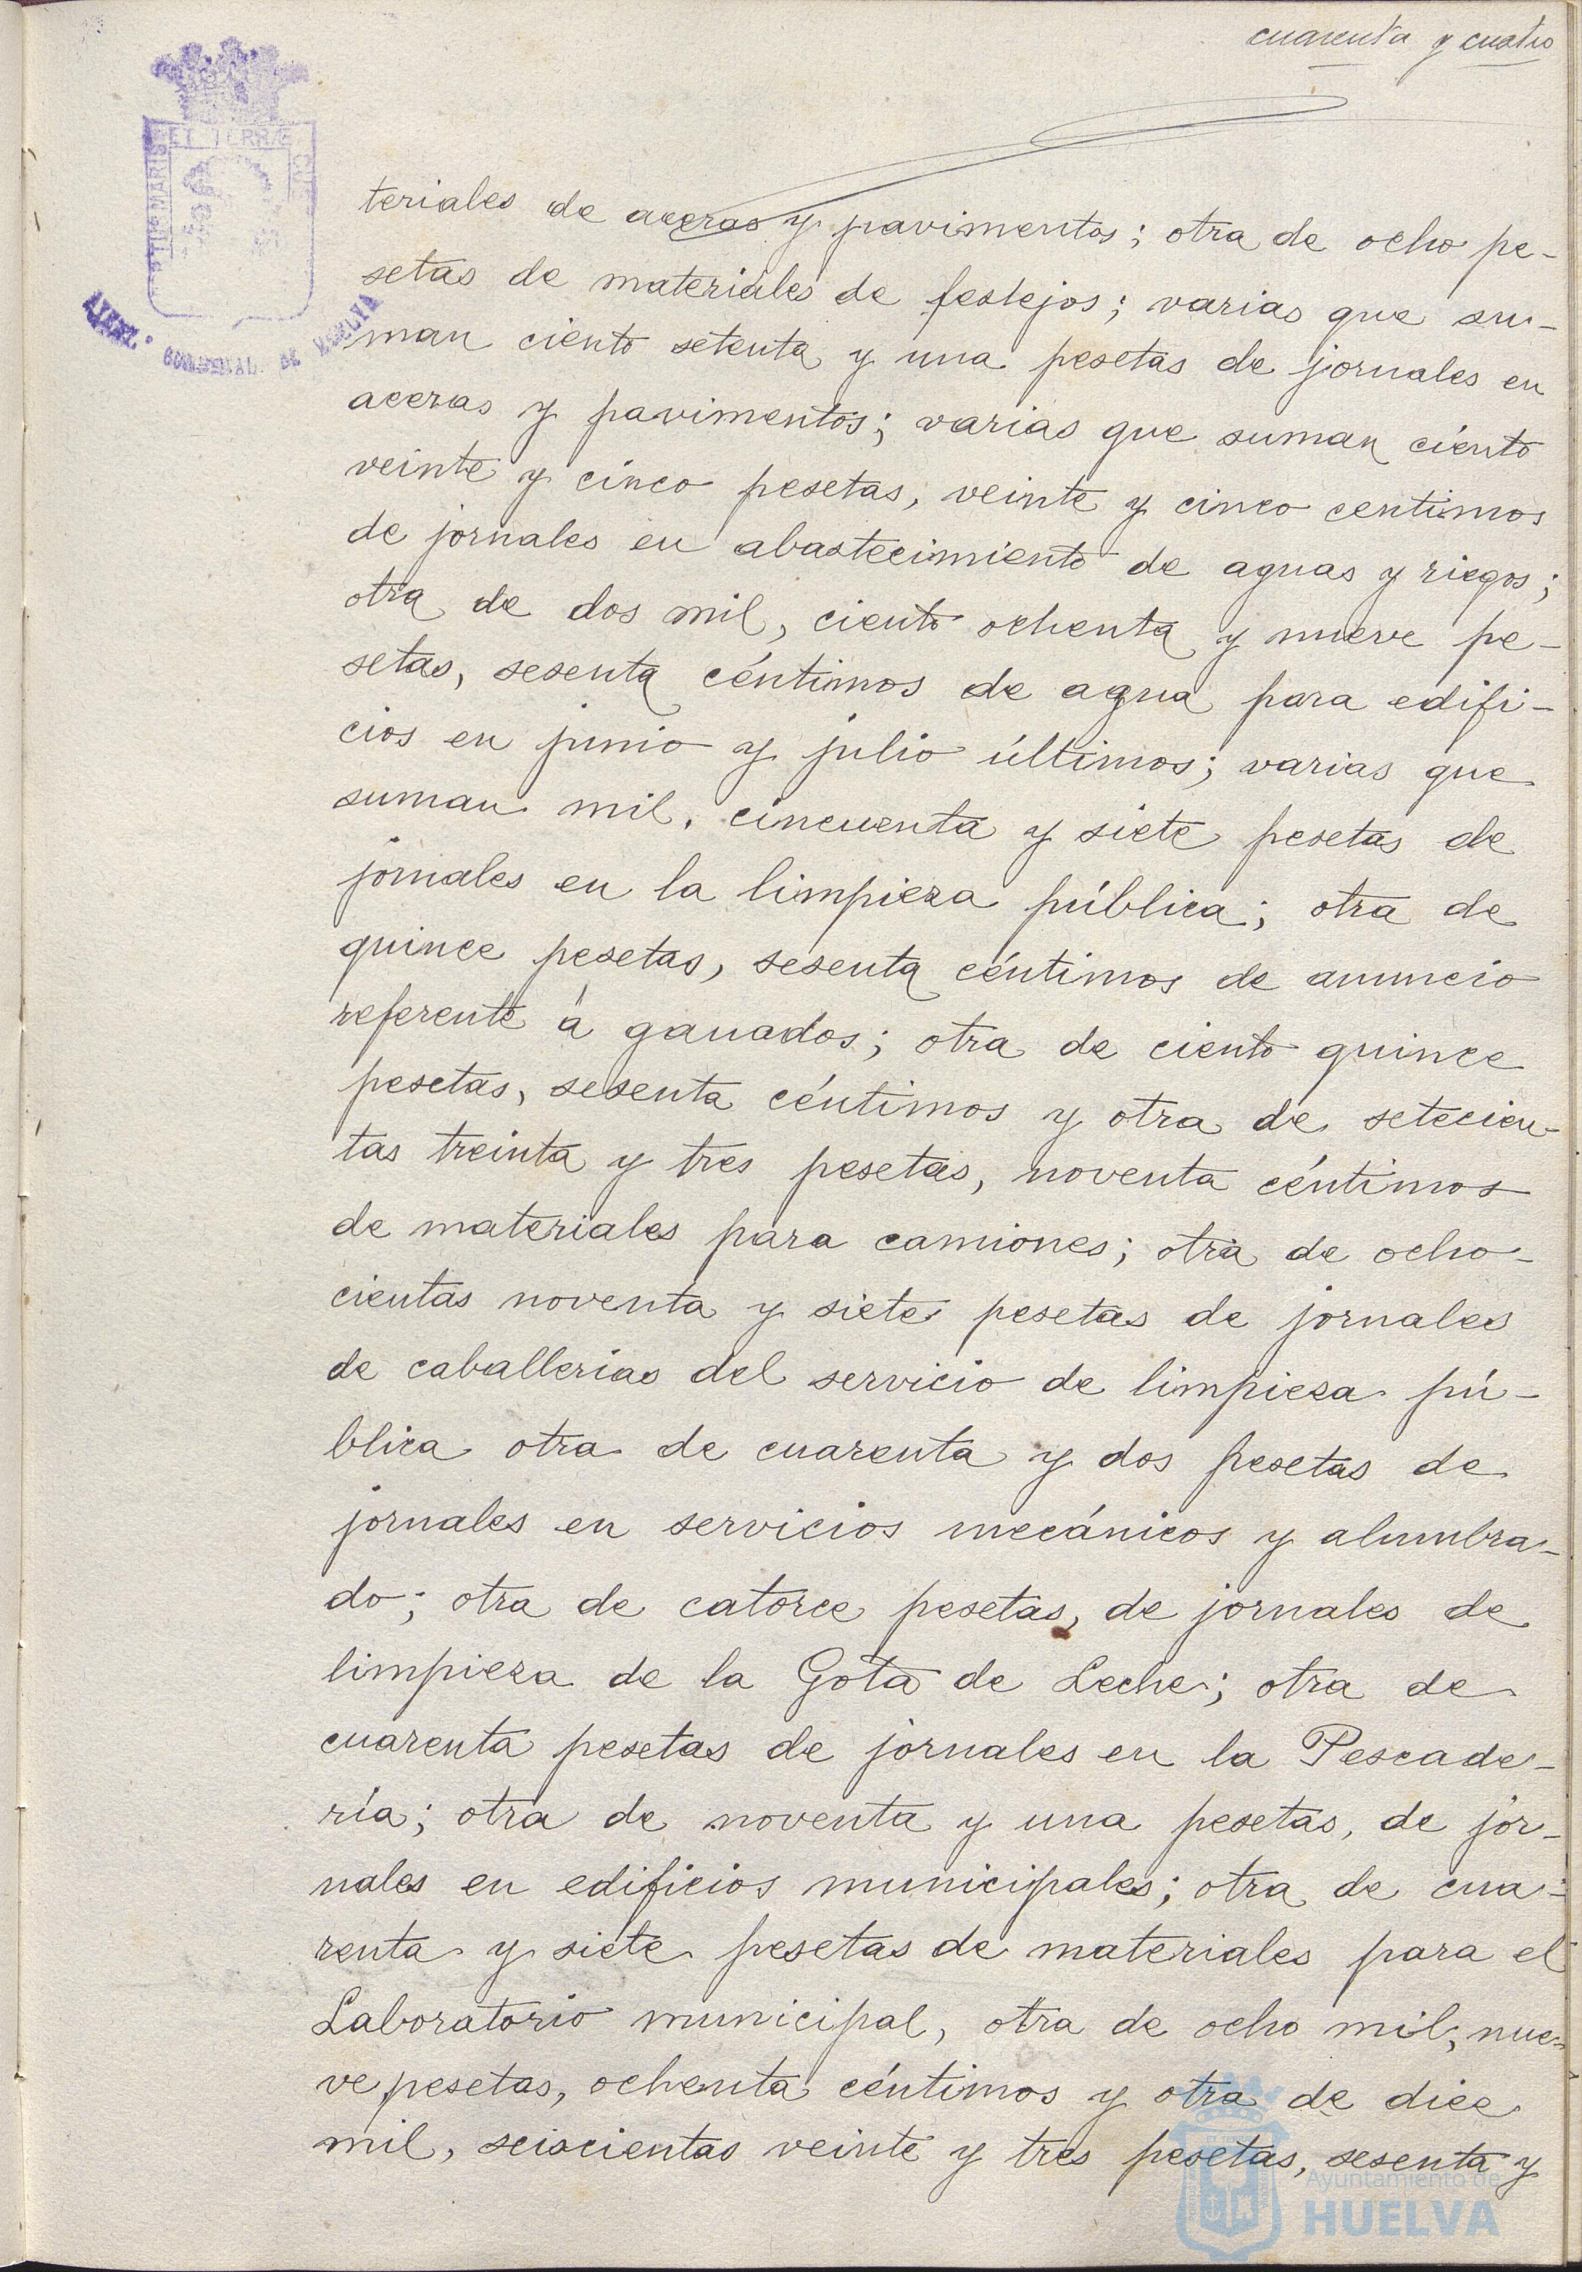 cuarenta y cuatro
teriales de aceras y pavimentos; otra de ocho pe-
setas de materiales de festejos; varias que su-
man ciento setenta y una pesetas de jornales en
aceras y pavimentos; varias que suman ciento
veinte y cinco pesetas, veinte y cinco centimos
de jornales en abastecimiento de aguas y riegos;
otra de dos mil, ciento ochenta y nueve pe-
setas, sesenta céntimos de agua para edifi-
cios en junio y julio últimos; varias que
suman mil, cincuenta y siete pesetas de
jornales en la limpieza pública; otra de
quince pesetas, sesenta céntimos de anuncio
referente á ganados; otra de ciento quince
pesetas, sesenta céntimos y otra de setecien-
tas treinta y tres pesetas, noventa céntimos
de materiales para camiones; otra de ocho-
cientas noventa y siete pesetas de jornales
de caballerias del servicio de limpieza pú-
blica otra de cuarenta y dos pesetas de
jornales en servicios mecánicos y alumbra-
do; otra de catorce pesetas, de jornales de
limpieza de la Gota de Leche; otra de
cuarenta pesetas de jornales en la Pescade-
ría; otra de noventa y una pesetas, de jor-
nales en edificios municipales; otra de cua-
renta y siete pesetas de materiales para el
Laboratorio municipal, otra de ocho mil, nue-
ve pesetas, ochenta céntimos y otra de diez
mil, seiscientas veinte y tres pesetas, sesenta y
ET TERRÆ
MARIS
DE HUELVA
Ayuntamiento de
HUELVA